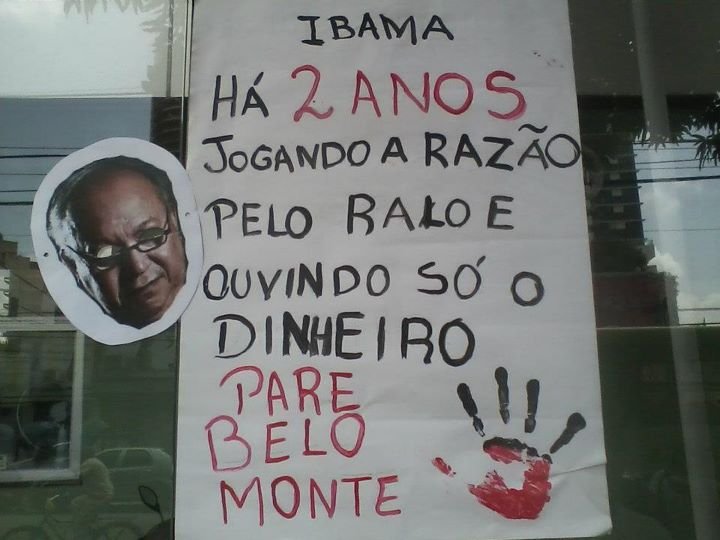 IBAMA
HÁ 2 ANOS
JOGANDO A RAZÃO
PELO RALO E
OUVINDO SÓ O
DINHEIRO
PARE
BELO
MONTE